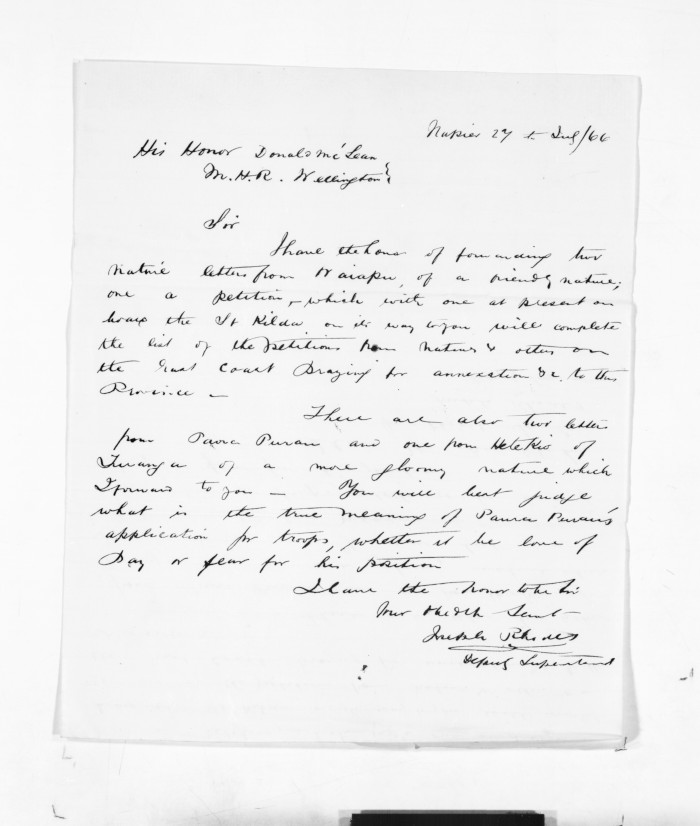 Napier 27th July/66
His Honor Donald McLean
M.H.R. Wellington
Sir
I have the honor of forwarding two
native letters from Waiapu, of a friendly nature;
one a petition, which with one at present on
board the St Kilda on its way to you will complete
the list of the petitions from natives & others on
the East Coast praying for annexation &c. to this
Province —
There are also two letters
from Paora Parau and one from HeteKio of
Turanga of a more gloomy nature which
I forward to you — You will best judge
what is the true meaning of Paora Parau's
application for troops, whether it be love of
Pay or fear for his position
I have the honor to be Sir
Your Obedt Servt
Joseph Rhodes
Deputy Superintend